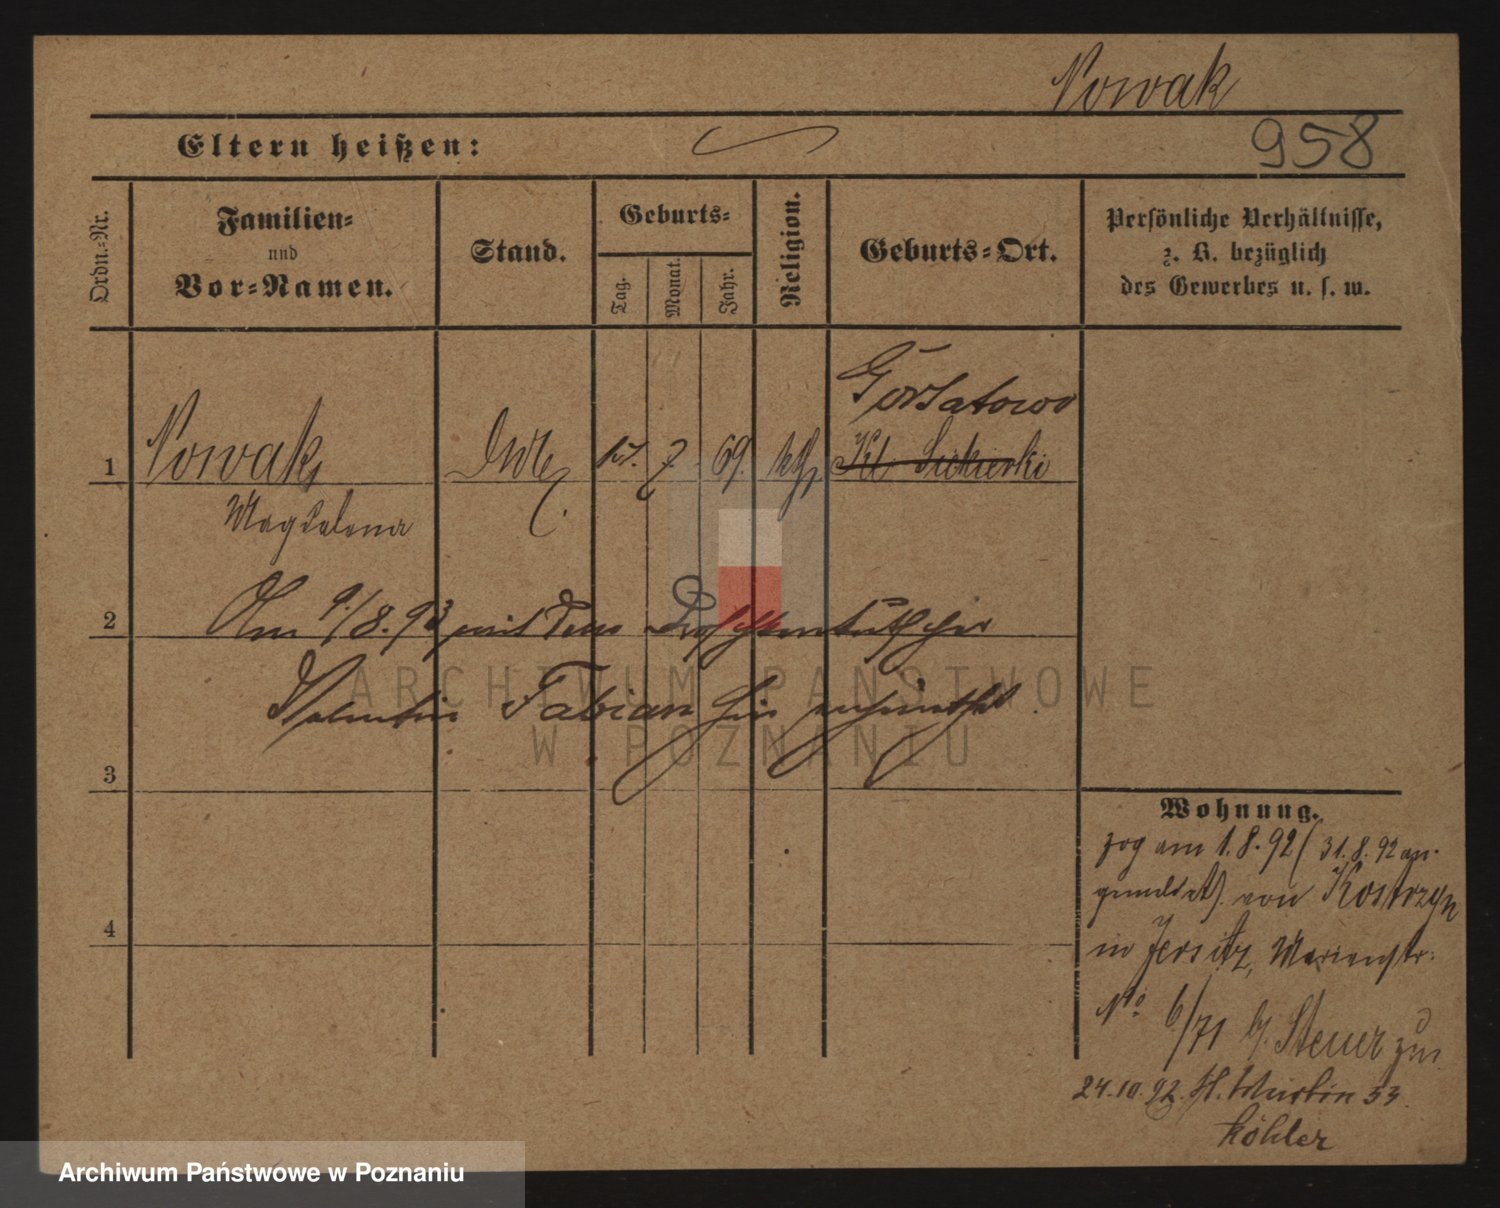 Nowak
958
Eltern heißen:
Ordn.=Nr.
Familien=
und
Vor=Namen.
Stand.
Geburts=
Tag.
Monat.
Jahr.
Religion.
Geburts=Ort.
Persönliche Verhältnisse,
z. B. bezüglich
des Gewerbes u. s. w.
Gorsatowo
1 Nowak, 7 69. kth Kl Siekierki
Magdalena
2 Am 9./8.93 mit dem Droschkenkutscher
Valentin Fabian hier verheirathet.
3
4
Wohnung.
zog am 1.8.92 (31.8.92 an-
gemeldet) von Kostrzyn
in Jersitz, Marienstr.
No. 6/71 b/ Steuer zu.
24.10.92. St. Martin 53
Köhler
ARCHIWUM PAŃSTWOWE
W POZNANIU
Archiwum Państwowe w Poznaniu